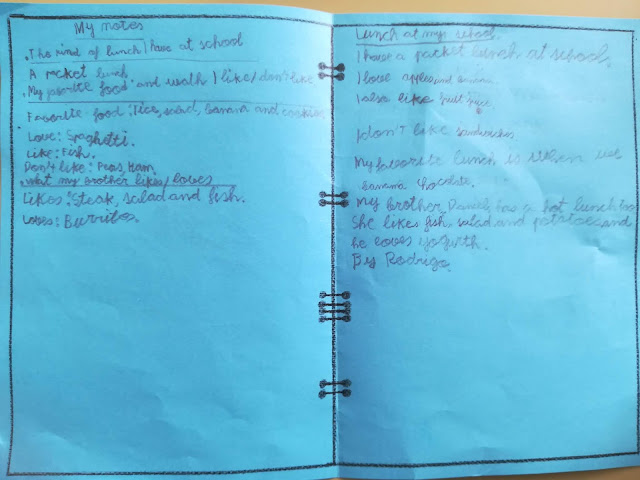 My notes
. The kind of lunch I have at school
A packet lunch.
. My favorite food and what I like/don't like
Favorite food: rice, salad, banana and cookies
Love: Spaghetti.
Like: Fish.
Don't like: Peas, Ham.
. What my brother likes/loves
Likes: Steak, salad and fish.
Loves: Burritos.
Lunch at my school.
I have a packet lunch at school.
I love apples and banana.
I also like fruit juice.
I don't like sandwiches
My favorite lunch is when
banana chocolate.
My brother Daniel has a hot lunch too
She likes fish, salad and potatoes and
he loves yogurth.
By Rodrigo